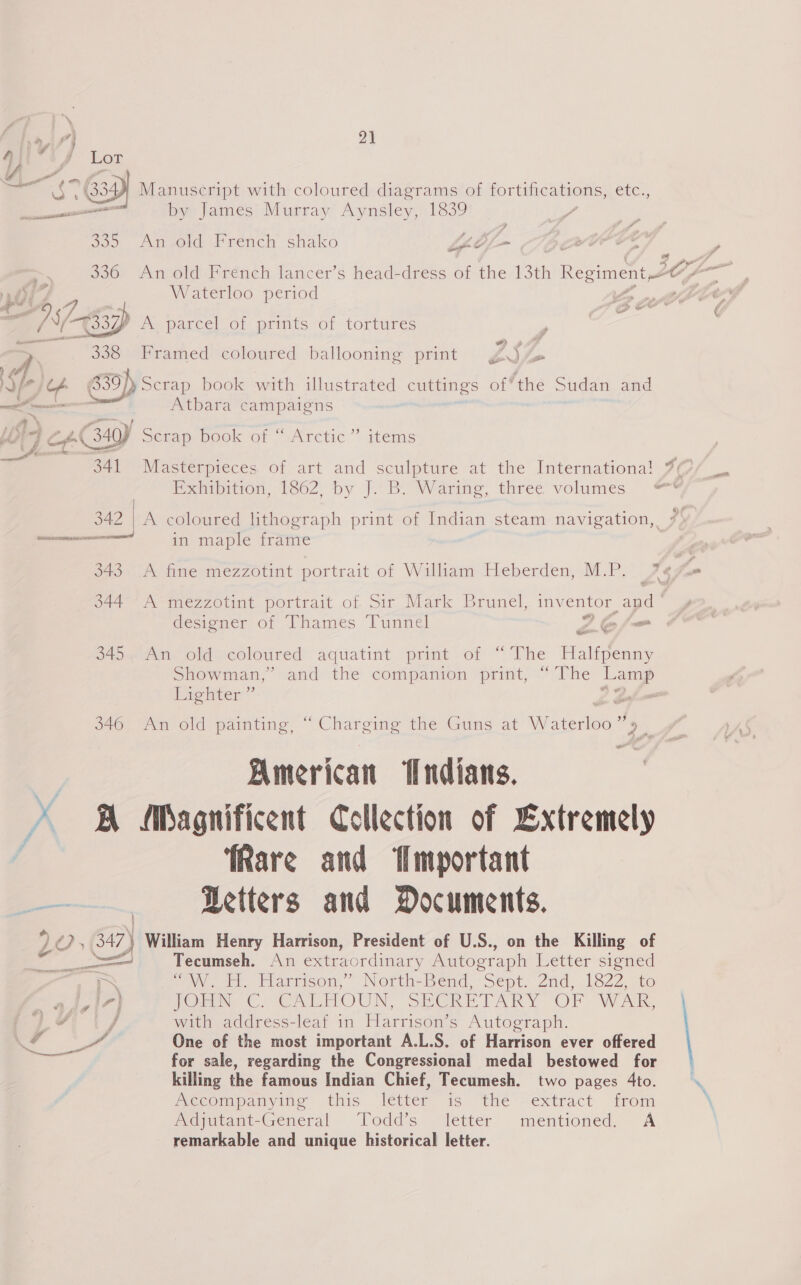 21
Lot
334 Manuscript with coloured diagrams of fortifications, etc.,
by James Murray Aynsley, 1839
335 An old French shako
336 An old French lancer's head-dress of the 13th Regiment,
Waterloo period
337 A parcel of prints of tortures
338 Framed coloured ballooning print
339 Scrap book with illustrated cuttings of the Sudan and
Atbara campaigns
340 Scrap book of “ Arctic ” items
341 Masterpieces of art and sculpture at the International
Exhibition, 1862, by J. B. Waring, three volumes
342 A coloured lithograph print of Indian steam navigation,
in maple frame
343 A fine mezzotint portrait of William Heberden, M.P.
344 A mezzotint portrait of Sir Mark Brunel, inventor and
designer of Thames Tunnel
345 An old coloured aquatint print of “ The Halfpenny
Showman,” and the companion print, “ The Lamp
Lighter ”
346 An old painting, “ Charging the Guns at Waterloo ”
American Indians.
A Magnificent Collection of Extremely
Rare and Important
Letters and Documents.
347 William Henry Harrison, President of U.S., on the Killing of
Tecumseh. An extraordinary Autograph Letter signed
“ W. H. Harrison,” North-Bend, Sept. 2nd, 1822, to
JOHN C. CALHOUN, SECRETARY OF WAR,
with address-leaf in Harrison's Autograph.
One of the most important A.L.S. of Harrison ever offered
for sale, regarding the Congressional medal bestowed for
killing the famous Indian Chief, Tecumseh. two pages 4to.
Accompanying this letter is the extract from
Adjutant-General Todd's letter mentioned. A
remarkable and unique historical letter.